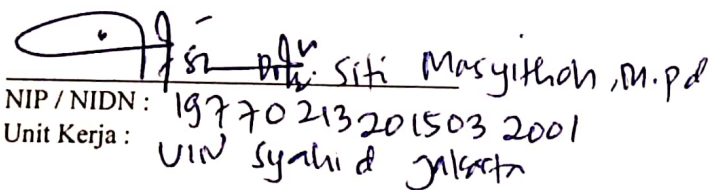 Siti Masyithoh, M.pd
NIP / NIDN : 19770213 201503 2001
Unit Kerja : UIN Syahid Jakarta